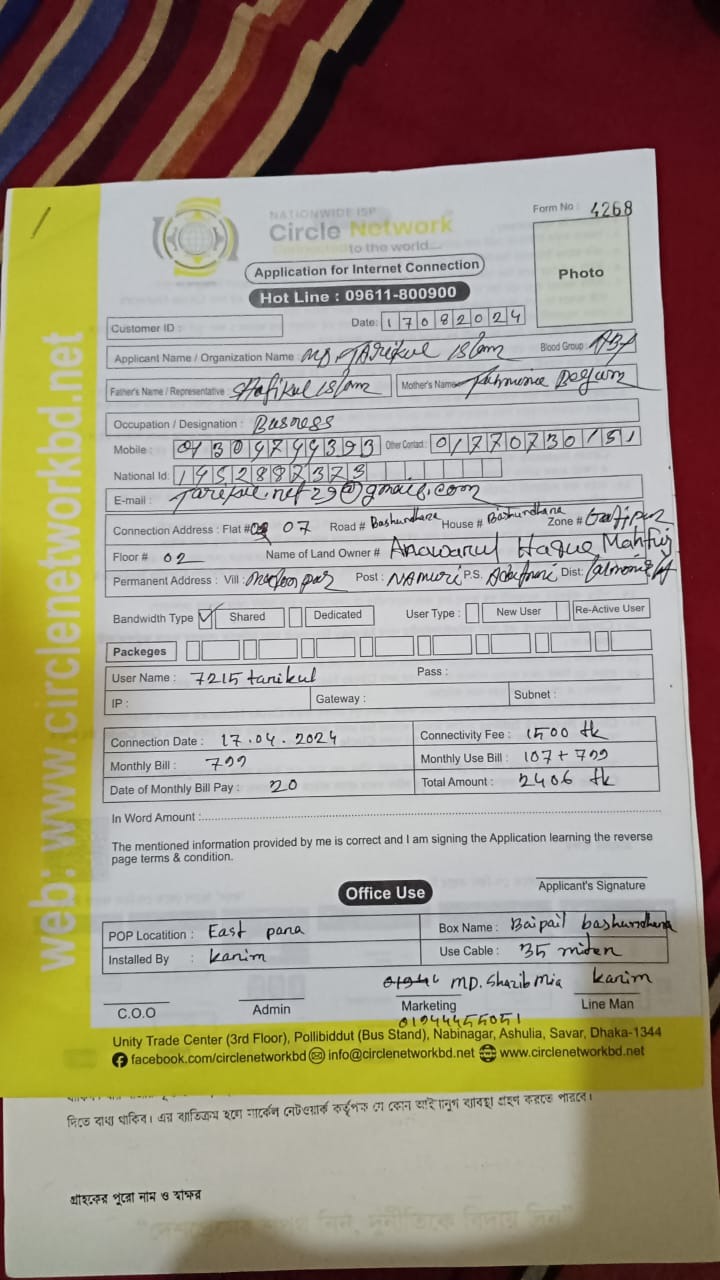 web: www.circlenetworkbd.net
NATIONWIDE ISP
Circle Network
Connected to the world...
Form No : 4268
Application for Internet Connection
Hot Line : 09611-800900
Photo
Customer ID :
Date: 17082024
Applicant Name / Organization Name : MD. TARikul Islam Blood Group :
Father's Name / Representative : Shafikul Islam Mother's Name Begum
Occupation / Designation : Busness
Mobile : Other Contact : 01770730151
National Id: 1952882373
E-mail :
Connection Address : Flat # 07 Road # Bashundhara House # Bashundhara Zone # Gazipur
Floor # 02 Name of Land Owner # Anowarul Haque Mahfuj
Permanent Address : Vill : Post : NAMURi P.S. Dist:
Bandwidth Type Shared Dedicated User Type : New User Re-Active User
Packeges
User Name : 7215 tarikul Pass :
IP : Gateway : Subnet :
Connection Date : 17.04.2024 Connectivity Fee : 1500 tk
Monthly Bill : 799 Monthly Use Bill : 107 + 799
Date of Monthly Bill Pay : 20 Total Amount : 2406 tk
In Word Amount :
The mentioned information provided by me is correct and I am signing the Application learning the reverse
page terms & condition.
Applicant's Signature
Office Use
POP Locatition : East para Box Name : Baipail bashundhara
Installed By : karim Use Cable : 35
MD. Sharib Mia karim
C.O.O Admin Marketing Line Man
01944455051
Unity Trade Center (3rd Floor), Pollibiddut (Bus Stand), Nabinagar, Ashulia, Savar, Dhaka-1344
facebook.com/circlenetworkbd info@circlenetworkbd.net www.circlenetworkbd.net
দিতে বাধ্য থাকিব। এর ব্যতিক্রম হলে সার্কেল নেটওয়ার্ক কর্তৃপক্ষ যে কোন আইনানুগ ব্যবস্থা গ্রহণ করতে পারবে।
গ্রাহকের পুরো নাম ও স্বাক্ষর